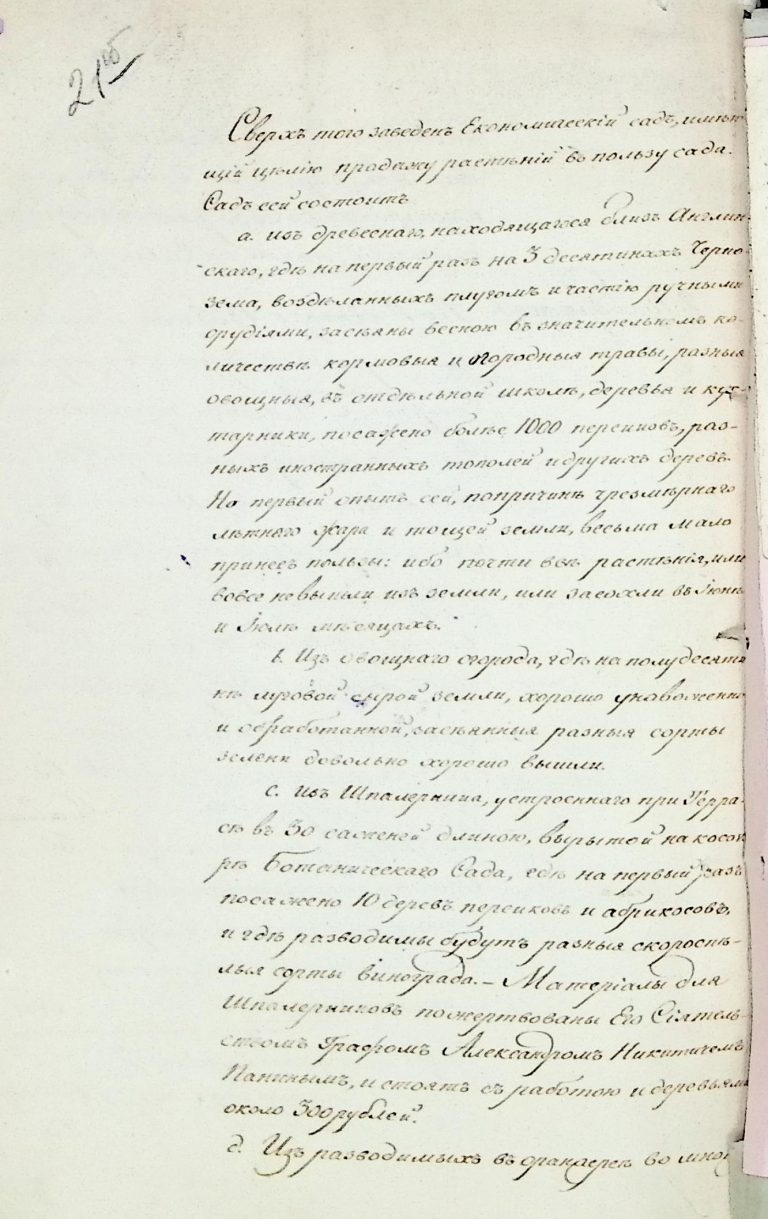 21об
Сверхъ того заведенъ Економическій садъ, имѣю-
щій цѣлію продажу растѣній въ пользу сада.
Садъ сей состоитъ
а. изъ древеснаго, находящагося близъ Англин-
скаго, гдѣ на первый разъ на 3 десятинахъ Черно-
зема, воздѣланныхъ плугомъ и частію ручными
орудіями, засѣяны весною въ значительномъ ко-
личествѣ кормовыя и породныя травы, разныя
овощныя, въ отдѣльной школѣ, деревья и кус-
тарники, посажено болѣе 1000 персиковъ, раз-
ныхъ иностранныхъ тополей и другихъ деревъ.
Но первый опытъ сей, попричинѣ чрезмѣрнаго
лѣтняго жара и тощей земли, весьма мало
принесъ пользы: ибо почти всѣ растѣнія, или
вовсе невышли изъ земли, или засохли въ Іюнѣ
и Іюлѣ мѣсяцахъ.
b. Изъ овощнаго огорода, гдѣ на полудесяти-
нѣ луговой сырой земли, хорошо унавоженно
и обработанной, засѣянныя разныя сорты
зелени довольно хорошо вышли.
с. изъ Шпалерника, устроеннаго при Терра-
сѣ въ 30 саженей длиною, вырытой на косого-
рѣ Ботаническаго Сада, гдѣ на первый разъ
посажено 10 деревъ персиковъ и абрикосовъ,
и гдѣ разводимы будутъ разныя скороспѣ-
лыя сорты винограда. – Матеріалы для
Шпалерниковъ пожертвованы Его Сіятель-
ствомъ Графомъ Александромъ Никитичемъ
Панинымъ, и стоятъ съ работою и деревьями
около 300 рублей.
d. Изъ разводимыхъ въ оранжереѣ во мно